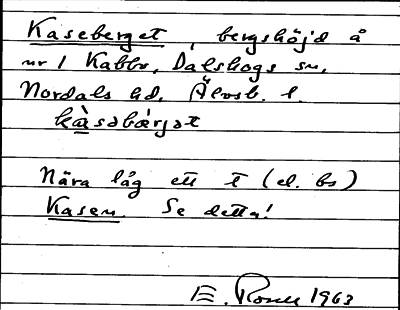 Kaseberget, bergshöjd å
nr 1 Kabbo, Dalskogs sn,
Nordals hd, Älvsb. l.
kàsəbæ̀rjət
Nära låg ett t (el. bs)
Kasen. Se detta!
E. Rosell 1963